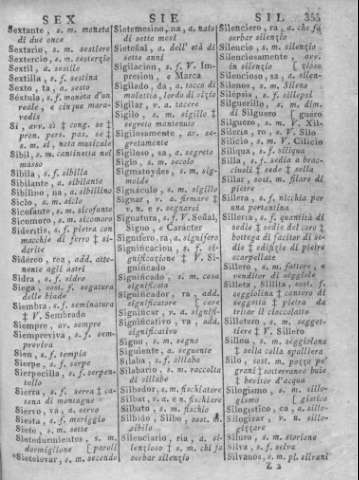 SEX SIE SIL 355
Sextante, s. m. moneta
di due once
Sextario, s. m. sestiere
Sextercio, s. m. sesterzio
Sextil, a. sestile
Sextilla, s. f. sestina
Sexto, ta, a. sesto
Séxtulo, s. f. moneta d'un
reale, e cinque mara-
vedis
Si, avv. sì ‡ cong. se ‡
pron. pers. pas. se ‡
s. m. si, nota musicale
Sibil, s. m. cantinetta nel
masso
Sibila, s. f. sibilla
Sibilante, a. sibilante
Sibilino, na, a. sibillino
Siclo, s. m. siclo
Sicofante, s. m. sicofante
Sicomoro, s. m. sicomoro
Sideritis, s. f. pietra con
macchie di ferro ‡ si-
derite
Sidéreo, rea, add. atte-
nente agli astri
Sidra, s. f. sidro
Siega, sost. f. segatura
delle biade
Siembra, s. f. seminatura
‡ V. Sembrado
Siempre, av. sempre
Siempreviva, s. f. sem-
previva
Sien, s. f. tempia
Sierpe, s. f. serpe
Sierpecilla, s. f. serpen-
tello
Sierra, s. f. serra ‡ ca-
tena di montagne
Siervo, va, a. servo
Siesta, s. f. meriggio
Siete, s. m. sette
Sietedurmientes, s. m.
dormiglione [paroli
Sietelevar, s. m. secondo
Sietemesino, na, a. nato
di sette mesi
Sieteñal, a. dell' età di
sette anni
Sigilacion, s. f. V. Im-
presion, e Marca
Sigilado, da, a. tocco da
malattia, lordo di vizio
Sigilar, v. a. tacere
Sigilo, s. m. sigillo ‡
segreto mantenuto
Sigilosamente, av. se-
gretamente
Sigiloso, sa, a. segreto
Siglo, s. m. secolo
Sigmatoydes, s. m. sig-
moide
Signáculo, s. m. sigillo
Signar, v. a. firmare ‡
v. n. e r. segnarsi
Signatura, s. f. V. Señal,
Signo, e Carácter
Signífero, ra, a. signifero
Significacion, s. f. si-
gnificazione ‡ V. Si-
gnificado
Significado, s. m. cosa
significata
Significador, ra, add.
significatore [care
Significar, v. a. signifi-
Significativo, va, add.
significativo
Signo, s. m. segno
Siguiente, a. seguente
Sílaba, s. f. sillaba
Silabario, s. m. raccolta
di sillabe
Silbador, s. m. fischiatore
Silbar, v. a. e n. fischiare
Silbato, s. m. fischio
Silbido, Silbo, sost. m.
sibilo
Silenciario, ria, a. si-
lenzioso ‡ s. m. chi fa
serbar silenzio
Silenciero, ra, a. che fa
serbar silenzio
Silencio, s. m. silenzio
Silenciosamente, avv.
in silenzio [zioso
Silencioso, sa, a. silen-
Sileno, s. m. Sileno
Silépsis, s. f. sillepsi
Silguerillo, s. m. dim.
di Silguero [guero
Silguero, s. m. V. Xil-
Silería, ro, s. V. Silo
Silicio, s. m. V. Cilicio
Siliqua, s. f. siliqua
Silla, s. f. sedia a brac-
ciuoli ‡ sede ‡ sella
Sillar, sost. m. filare di
pietre
Sillera, s. f. nicchia per
una portantina
Sillería, s. f. quantità di
sedie ‡ sedie del coro ‡
bottega di facitor di se-
die ‡ edifizio di pietre
scarpellate
Sillero, s. m. fattore, e
venditor di seggiole
Silleta, Sillita, sost. f.
seggiolina ‡ cantero di
seggetta ‡ pietra da
tritar il cioccolatto
Silletero, s. m. segget-
tiere ‡ V. Sillero
Sillon, s. m. seggiolone
‡ sella colla spalliera
Silo, sost. m. pozzo pe'
grani ‡ sotterraneo buio
‡ bevitor d'acqua
Silogismo, s. m. sillo-
gismo [gistico
Silogistico, ca, a. sillo-
Silogizar, v. n. sillo-
gizzare
Siluro, s. m. storione
Silva, s. f. selva
Silvanos, s. m. pl. silvani
Z 2